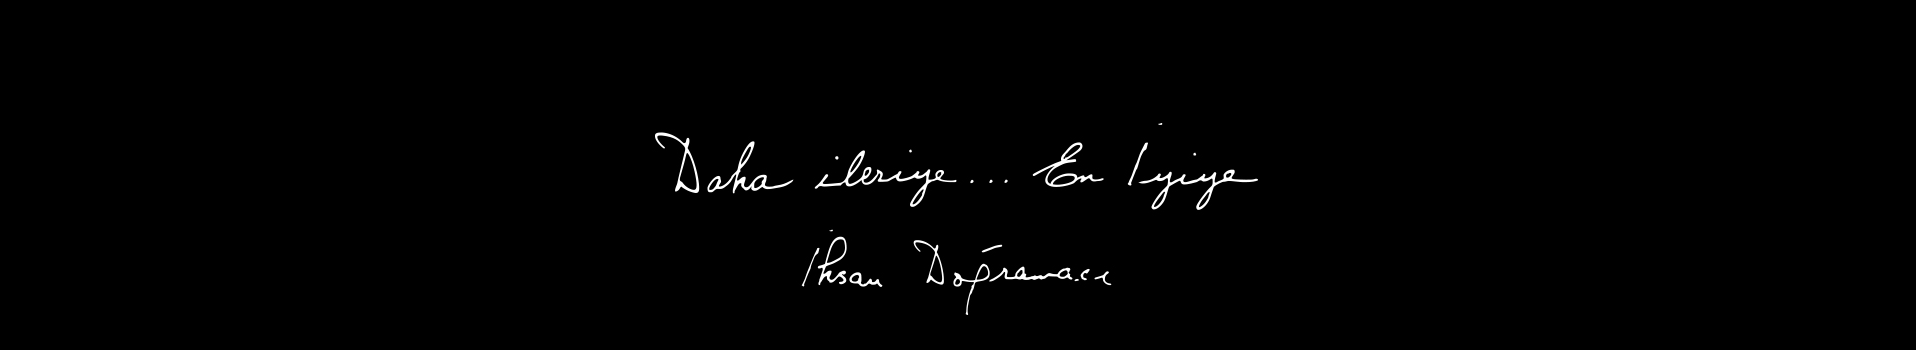 Daha ileriye... En İyiye
İhsan Doğramacı